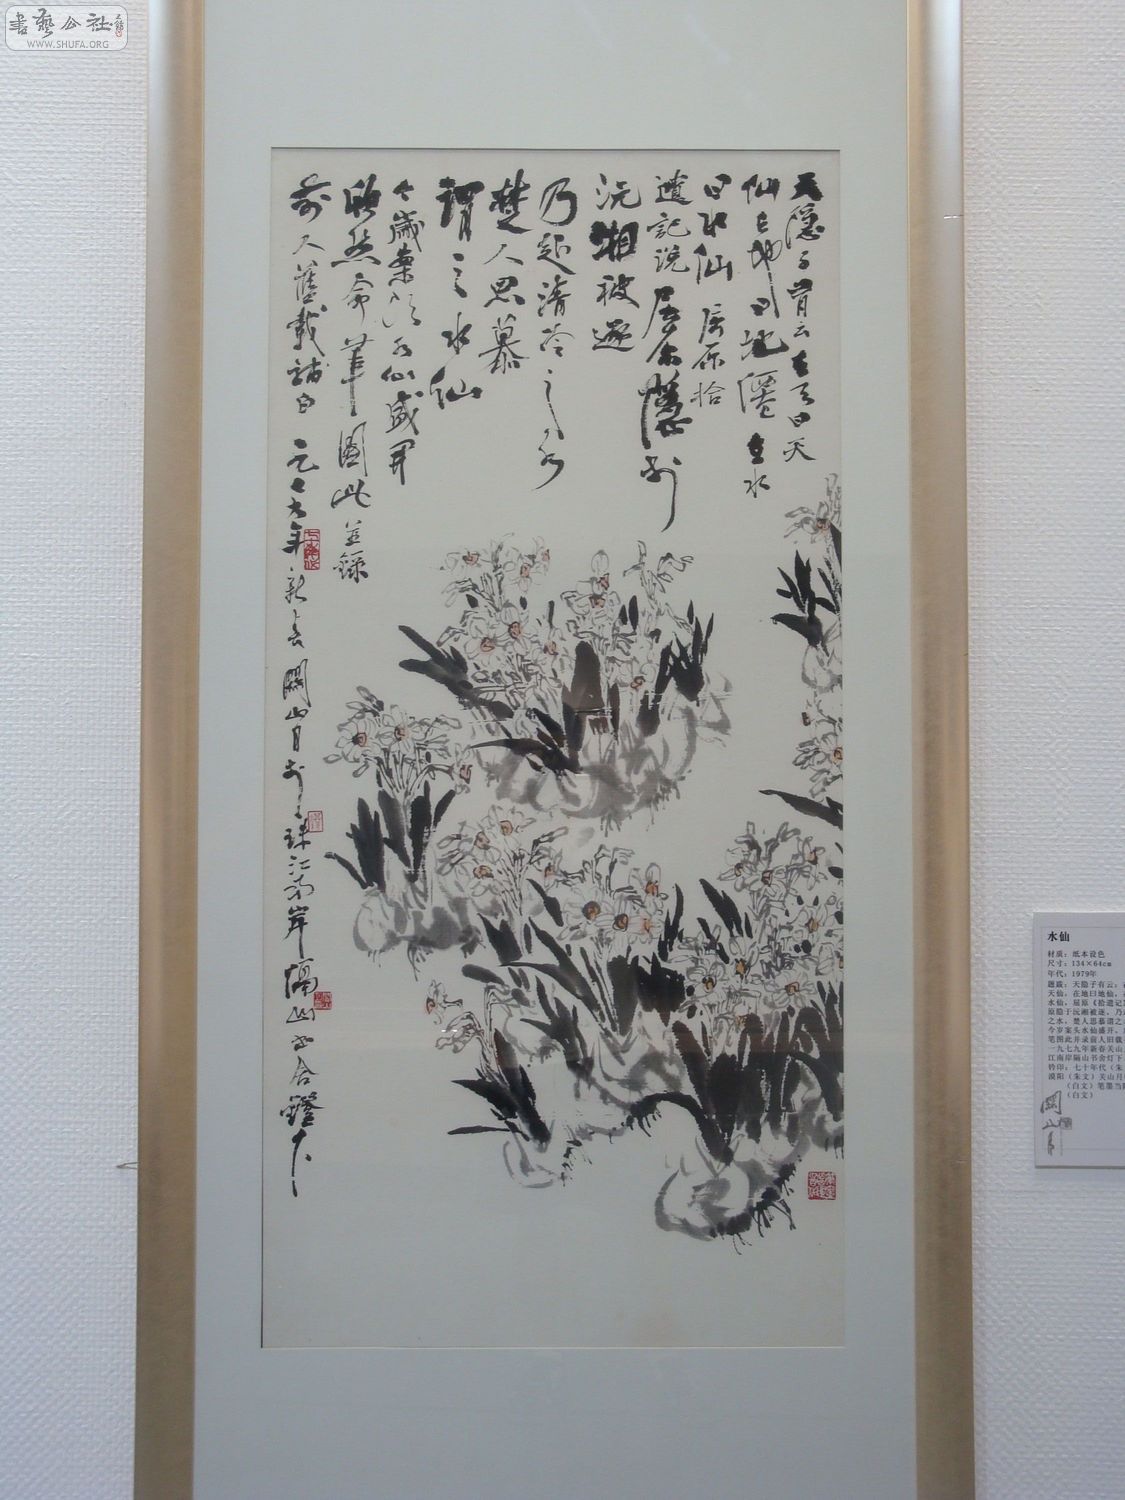 書藝公社
WWW.SHUFA.ORG
天隱子曾云在天曰天
仙在地曰地僊在水
曰水仙屈原拾
遺記説屈原隱於
沅湘被逐
乃赴清泠之水
楚人思慕
謂之水仙
今歲案頭水仙盛開
欣然命筆圖此並錄
前人舊載補白
一九七九年新春關山月於珠江南岸隔山書舍鐙下
水仙
材质：纸本设色
尺寸：134×64cm
年代：1979年
题跋：天隐子有云：
天仙，在地曰地仙，
水仙，屈原《拾遗记
原隐于沅湘被逐，乃
之水，楚人思慕谓之
今岁案头水仙盛开，
笔图此并录前人旧载
一九七九年新春关山
江南岸隔山书舍灯下
钤印：七十年代（朱
漠阳（朱文）关山月
（白文）笔墨当随
（白文）
關山月